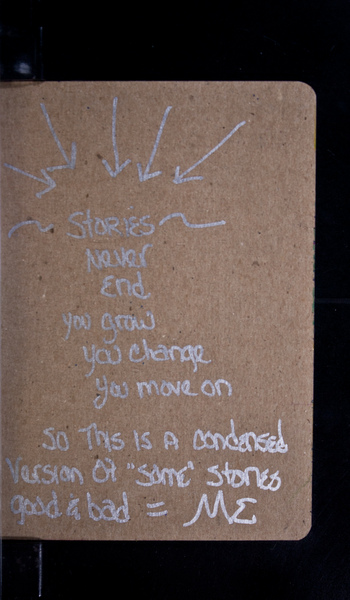 ~ STORIES ~
Never
End
you grow
you change
you move on
so This Is A condensed
Version Of "some" stories
good & bad = ME